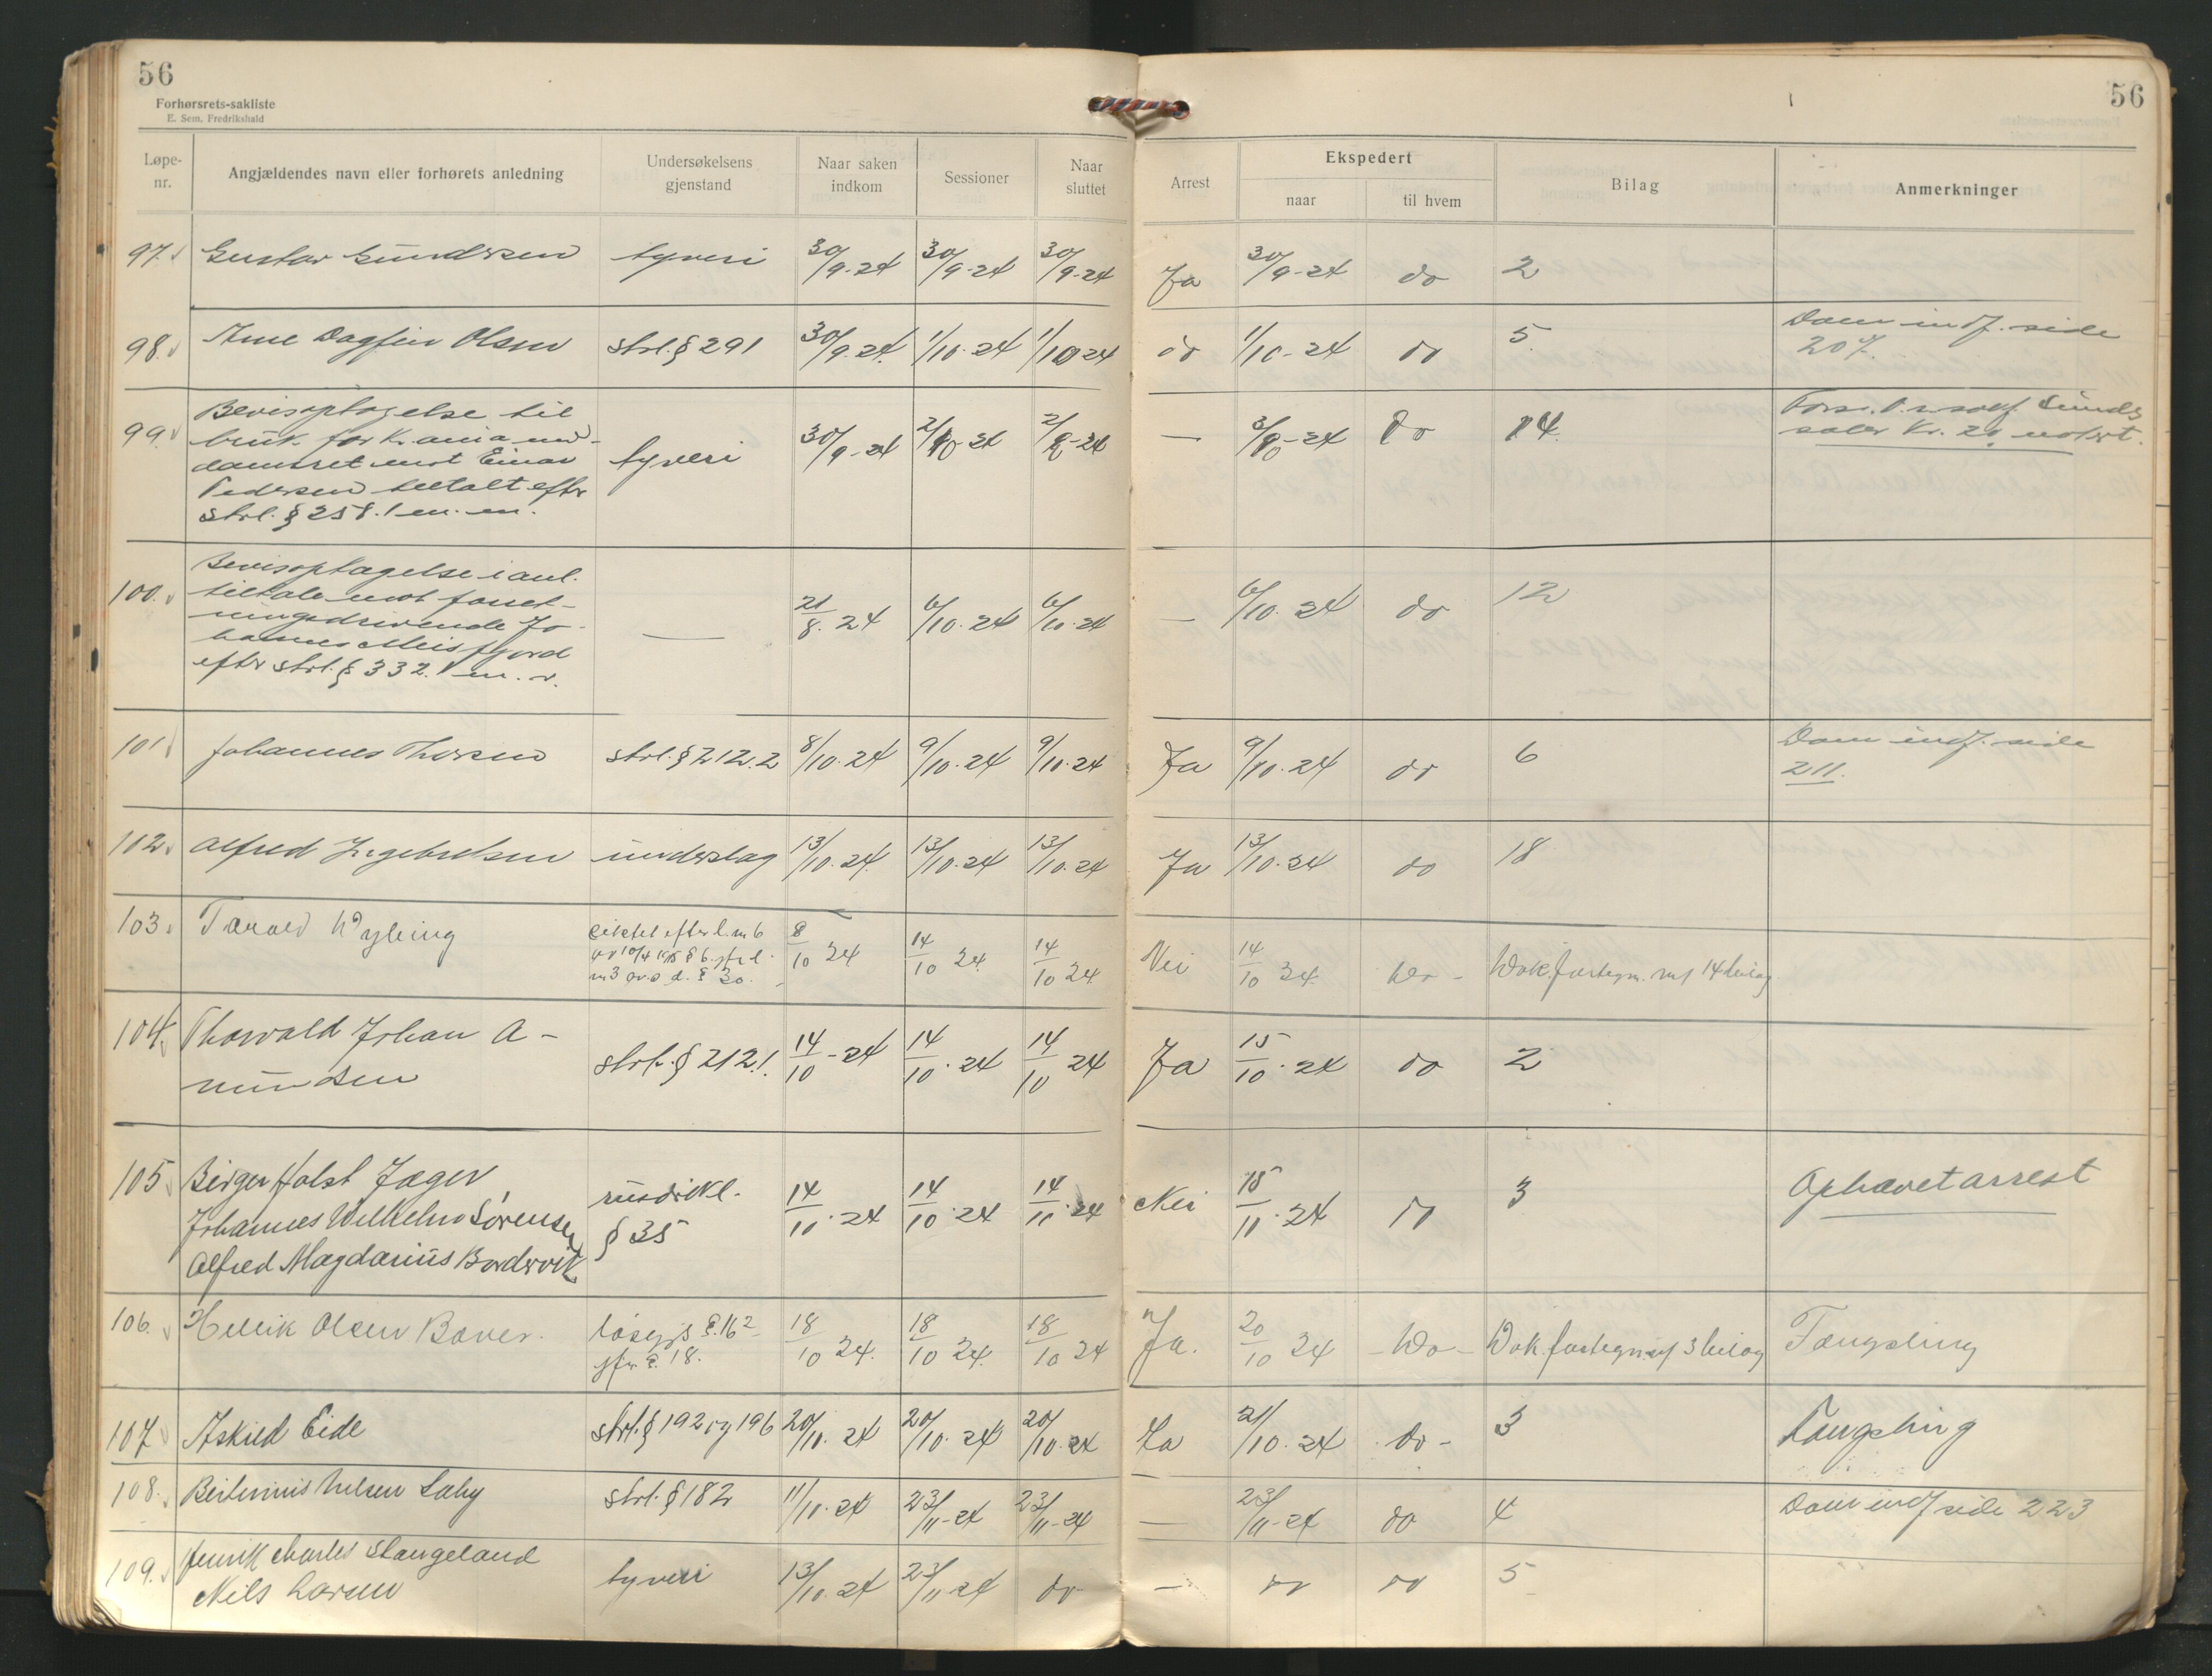 56
Forhørsrets-sakliste
E. Sem, Fredrikshald
56
Løpe-nr.
Angjældendes navn eller forhørets anledning
Undersøkelsens gjenstand
Naar saken indkom
Sessioner
Naar sluttet
Arrest
Ekspedert
naar
til hvem
Bilag
Anmerkninger
97. Gustav Gundersen tyveri 30/9-24 30/9-24 30/9-24 Ja 30/9-24 do 2
98. Arne Dagfin Olsen strl. § 291 30/9-24. 1/10-24 1/10 24 do 1/10-24 do 5. Dom indf. side
207.
99. Bevisoptagelse til
bruk for Kr.ania med-
domsret mot Einar
Pedersen tiltalt efter
strl. § 258.1 m.m.
tyveri 30/9-24 2/10 24 do 14
Kr. 20 notert.
100. Bevisoptagelse i anl.
tiltale mot forret-
ningsdrivende Jo-
hannes Meisfjord
efter strl. § 332.1 m.v.
— 21/8.24 6/10.24 6/10.24 — 6/10.24 do 12
101 Johannes Thorsen strl. § 212.2 8/10.24 9/10.24 9/10.24 Ja 9/10.24 do 6 Dom indf. side
211.
102. Alfred Ingebretsen underslag 13/10.24. 13/10.24 13/10.24 Ja 13/10.24 do 18
103. 8/10 24 14/10 24 14/10 24 Nei 14/10 24 Do - Dok.fortegn. m/ 14 bilag
104. Thorvald Johan A-
mundsen
strl. § 212.1. 14/10-24 14/10.24 14/10 24 Ja 15/10.24 do 2
105 Birger Holst Jæger
Johannes Wilhelm Sørensen
Alfred Magdarius
rusdrikl.
§ 35
14/10.24 Nei do 3 Ophævet arrest
106. Olsen løsgjl §.16²
jfr §. 18.
18/10 24. 18/10 24. 18/10 24 Ja. 20/10 24 - Do - Dok.fortegn. m/ 3 bilag Fængsling
107 Askild Eide strl. § 192 og 196 20/10.24 20/10.24 Ja 21/10.24 do - 3 Fængsling
108. Nilsen strl. § 182 11/11.24 23/11-24 23/11-24 — 23/11-24 do 4 Dom indf side 223
109. Henrik Charles Stangeland
Nils Larsen
tyveri 13/10.24 23/11-24 do — do do 5